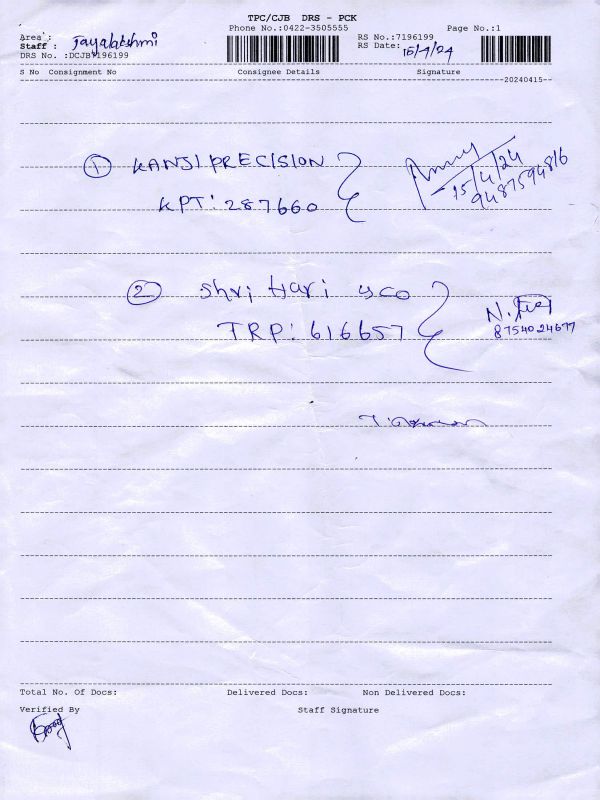 TPC/CJB DRS - PCK
Phone No.:0422-3505555 Page No.:1
Area : RS No.:7196199
Staff : Jayalakshmi RS Date: 15/4/24
DRS No. :DCJB7196199
S No Consignment No Consignee Details Signature
20240415--
1 KANJI PRECISION
KPT: 287660
15/4/24
9487594816
2 Shri Hari &CO
TRP: 616657
N.
8754024677
Total No. Of Docs: Delivered Docs: Non Delivered Docs:
Verified By Staff Signature